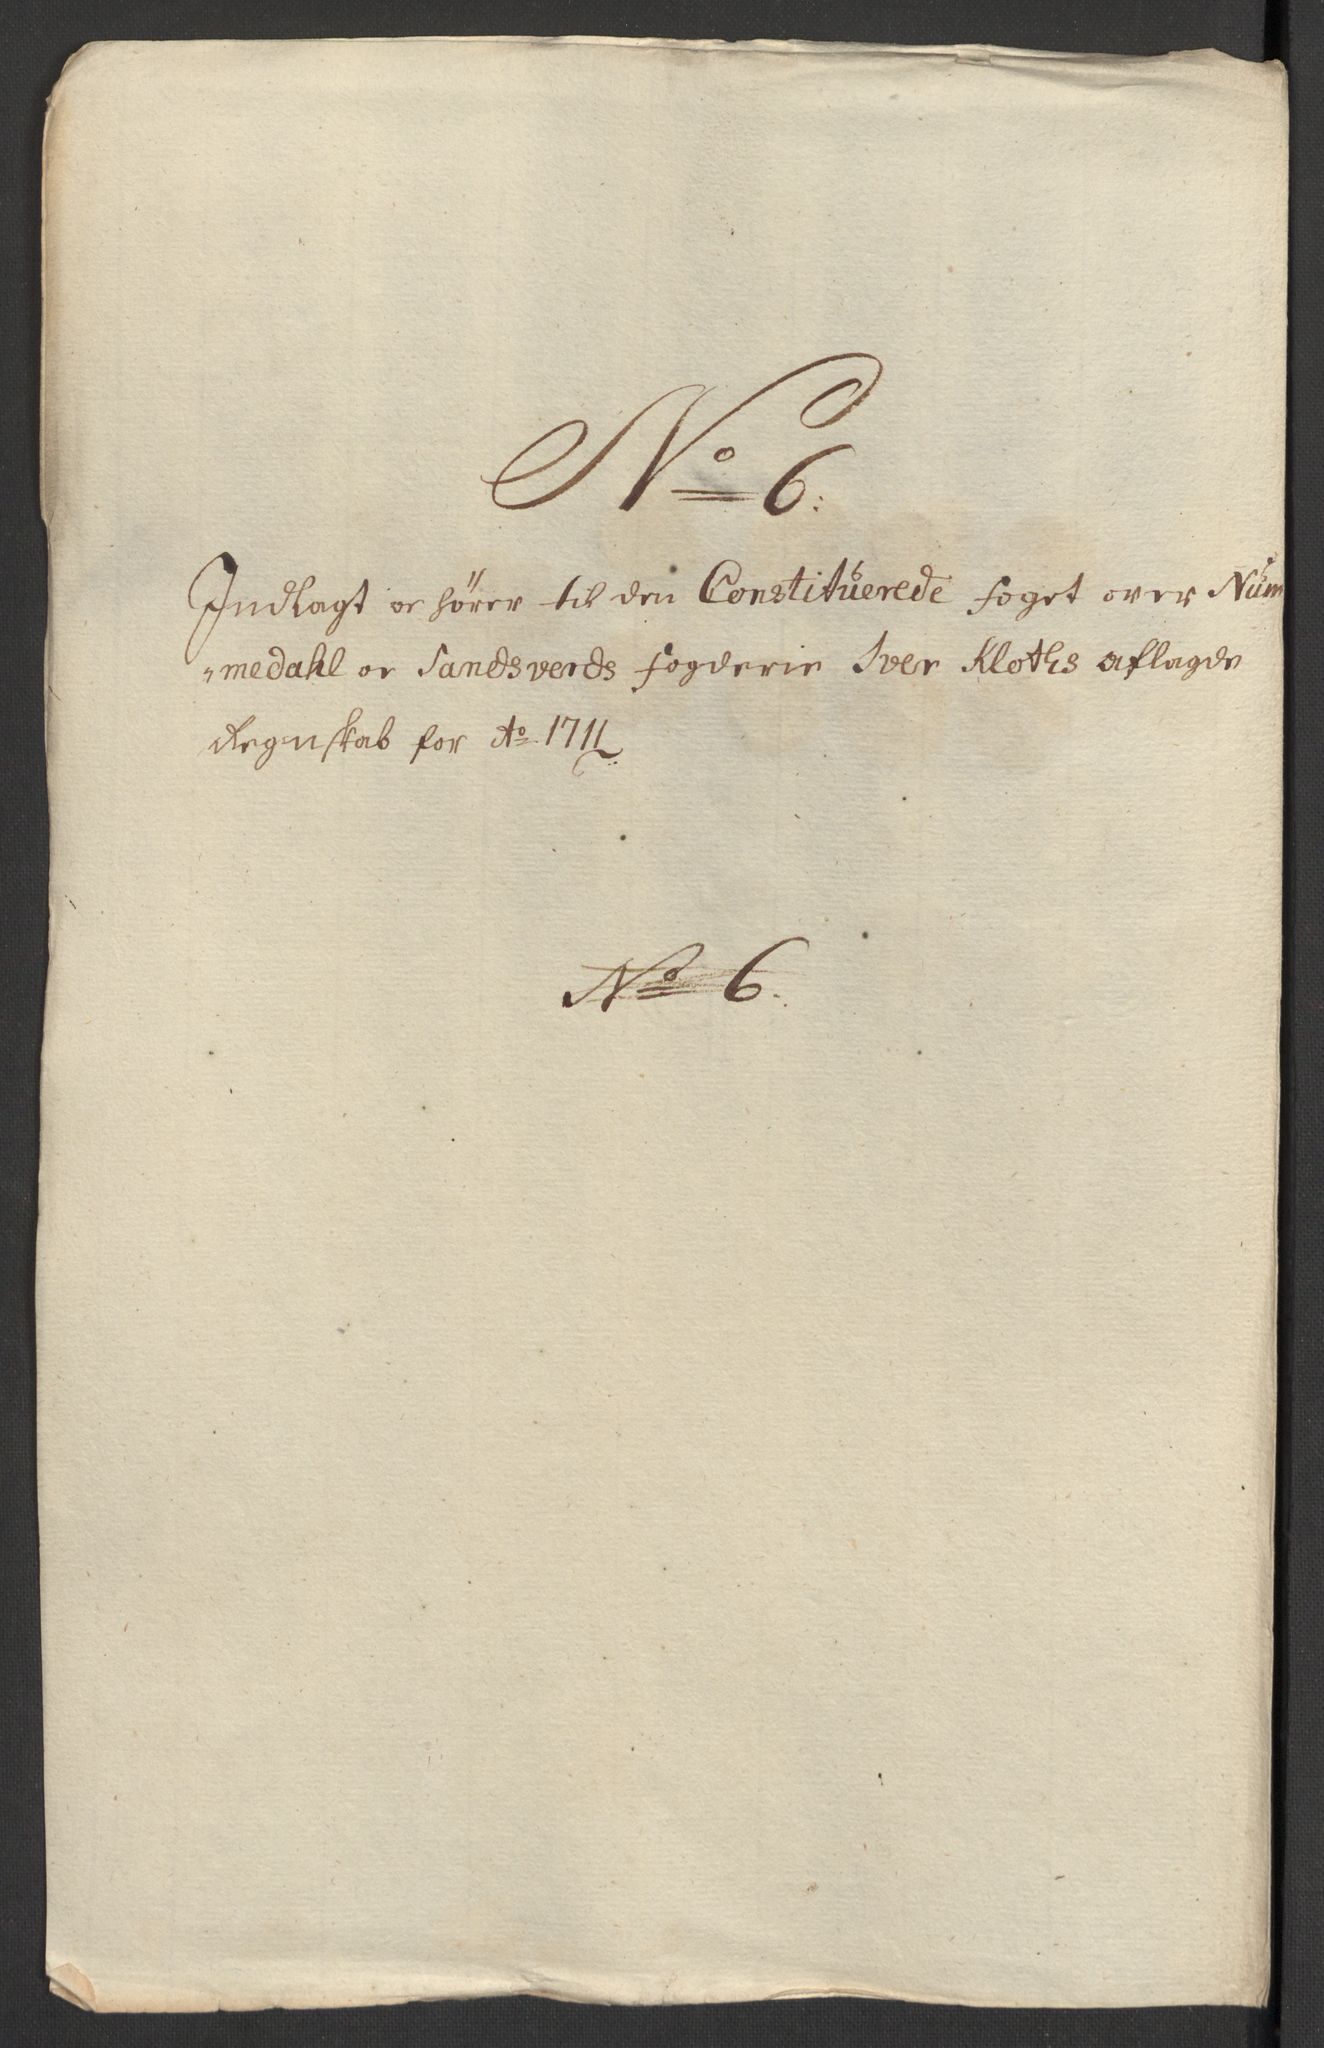 No 6.
Indlagt oc hører til den Constituerede foget over Num
medahl oc Sandsverds fogderie Iver Kloths aflagde
Regnskab for Ao 1711
No 6.